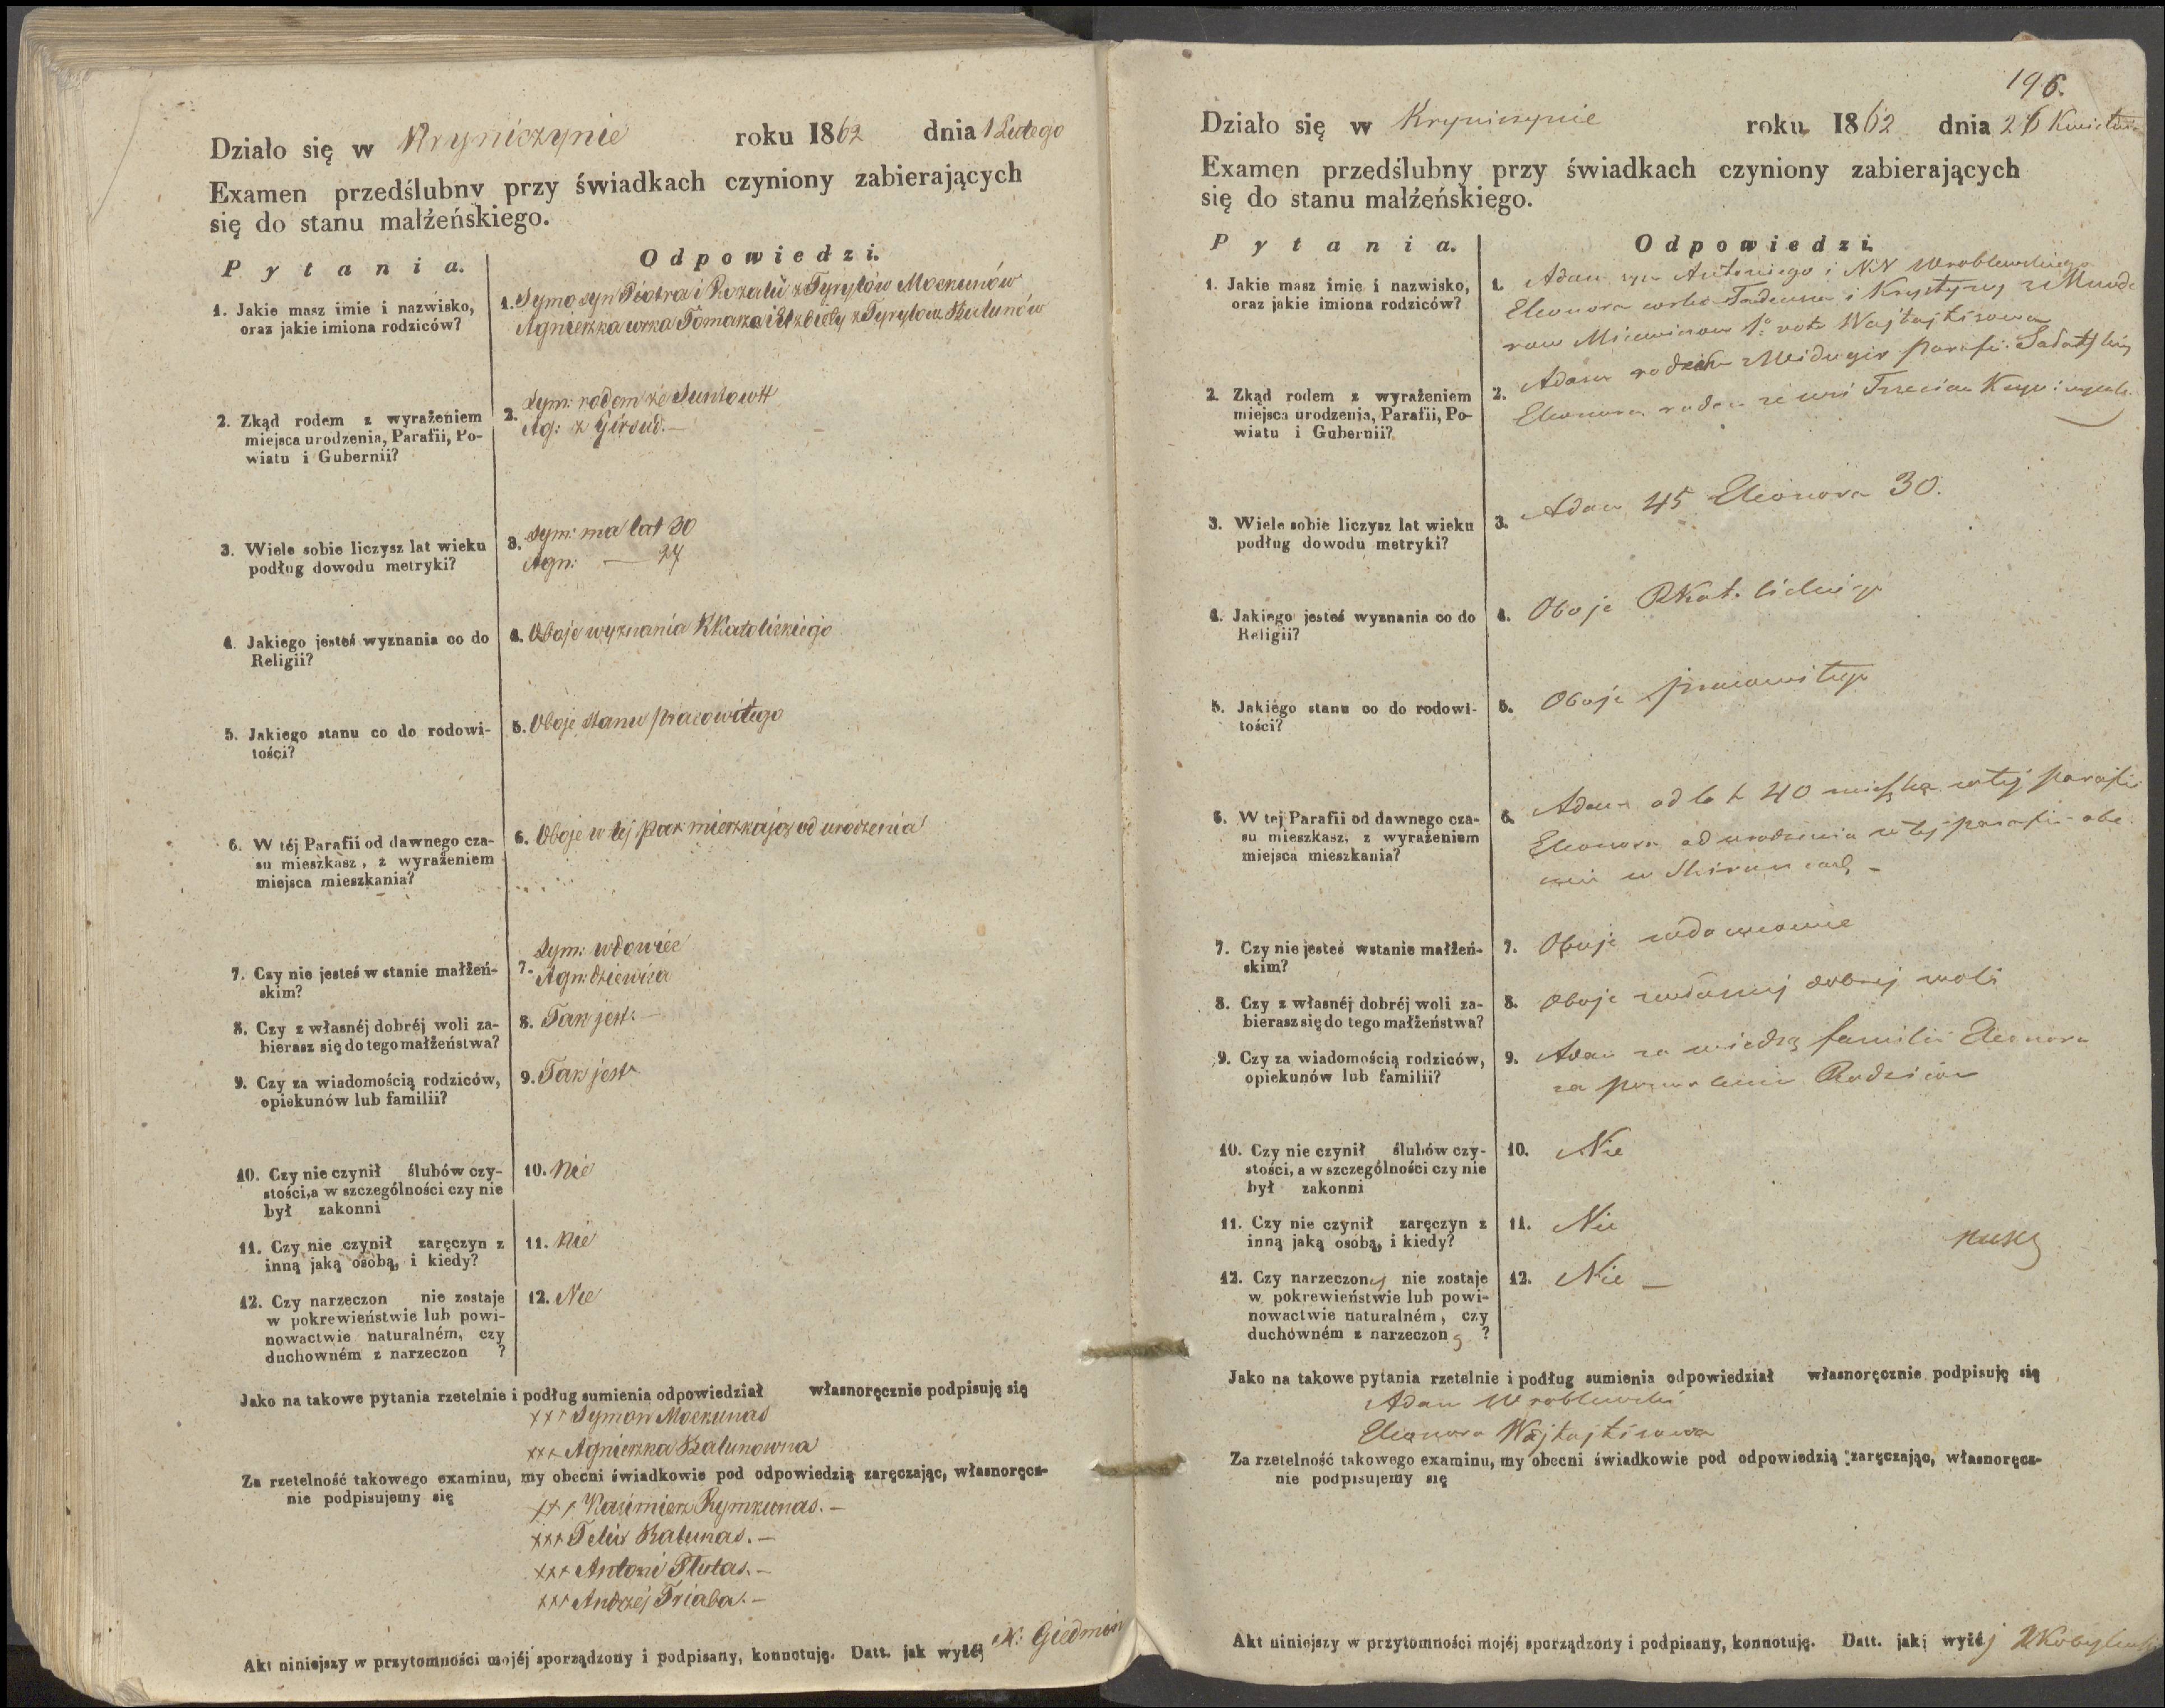 Działo się w Kryniczynie roku 1862 dnia 1 Lutego
Examen przedślubny przy świadkach czyniony zabierających
się do stanu małżeńskiego.
Pytania.
Odpowiedzi.
1. Jakie masz imie i nazwisko,
oraz jakie imiona rodziców?
1. Symo syn Piotra i Rozalii z Tyrylów Mockunów
Agnieszka Tomasza i Elzbiety z Tyrylow Batunów
2. Zkąd rodem z wyrażeniem
miejsca urodzenia, Parafii, Po-
wiatu i Gubernii?
2. Sym: rodem ze
Ag: z Girsud.—
3. Wiele sobie liczysz lat wieku
podług dowodu metryki?
3. Sym: ma lat 30
Agn: — 24
4. Jakiego jesteś wyznania co do
Religii?
4. Oboje wyznania RKatolickiego
5. Jakiego stanu co do rodowi-
tości?
5. Oboje stanu pracowitego
6. W téj Parafii od dawnego cza-
su mieszkasz, z wyrażeniem
miejsca mieszkania?
6. Oboje w tej par mieszkają od urodzenia
7. Czy nie jesteś w stanie małżeń-
skim?
7. Sym: wdowiec
Agn: dziewica
8. Czy z własnéj dobréj woli za-
bierasz się do tego małżeństwa?
8. Tak jest.—
9. Czy za wiadomością rodziców,
opiekunów lub familii?
9. Tak jest
10. Czy nie czynił ślubów czy-
stości, a w szczególności czy nie
był zakonni
10. Nie
11. Czy nie czynił zaręczyn z
inną jaką osobą, i kiedy?
11. Nie
12. Czy narzeczon nie zostaje
w pokrewieństwie lub powi-
nowactwie naturalném, czy
duchowném z narzeczon ?
12. Nie
Jako na takowe pytania rzetelnie i podług sumienia odpowiedział własnoręcznie podpisuję się
xxx Symon Mockunas
xxx Agnieszka Batunowna
Za rzetelność takowego examinu, my obecni świadkowie pod odpowiedzią zaręczając, własnoręcz-
nie podpisujemy się
xxx Kazimierz Rymkunas.—
xxx Felix Batunas.—
xxx Antoni Plutas.—
xxx Andrzej Triaba.—
Akt niniejszy w przytomności mojéj sporządzony i podpisany, konnotuję. Datt. jak wyżéj
196.
Działo się w Kryniczynie roku 1862 dnia 26 Kwietnia
Examen przedślubny przy świadkach czyniony zabierających
się do stanu małżeńskiego.
Pytania.
Odpowiedzi.
1. Jakie masz imie i nazwisko,
oraz jakie imiona rodziców?
1. Adam syn Antoniego i NN Wroblewskiego
Eleonora corka Tadeusza i Krystyny
Micewiczow 1o voto Wajtajtisowa
2. Zkąd rodem z wyrażeniem
miejsca urodzenia, Parafii, Po-
wiatu i Gubernii?
2. Adam rodem z parafii
Eleonora rodem ze wsi
3. Wiele sobie liczysz lat wieku
podług dowodu metryki?
3. Adam 45 Eleonora 30.
4. Jakiego jesteś wyznania co do
Religii?
4. Oboje RKatolickiego
5. Jakiégo stanu co do rodowi-
tości?
5. Oboje pracowitego
6. W tej Parafii od dawnego cza-
su mieszkasz, z wyrażeniem
miejsca mieszkania?
6. Adam od lat 40 mieszka w tej parafii
Eleonora od urodzenia w tej parafii obe
cnie w
7. Czy nie jesteś wstanie małżeń-
skim?
7. Oboje wdowcowie
8. Czy z własnéj dobréj woli za-
bierasz się do tego małżeństwa?
8. Oboje z własnej dobrej woli
9. Czy za wiadomością rodziców,
opiekunów lub familii?
9. Adam za wiedzą familii Eleonora
za pozwoleniem Rodziców
10. Czy nie czynił ślubów czy-
stości, a w szczególności czy nie
był zakonni
10. Nie
11. Czy nie czynił zaręczyn z
inną jaką osobą, i kiedy?
11. Nie
12. Czy narzeczony nie zostaje
w pokrewieństwie lub powi-
nowactwie naturalném, czy
duchowném z narzeczoną ?
12. Nie —
Jako na takowe pytania rzetelnie i podług sumienia odpowiedział własnoręcznie podpisuję się
Adam Wroblewski
Eleonora Wajtajtisowa
Za rzetelność takowego examinu, my obecni świadkowie pod odpowiedzią zaręczając, własnoręcz-
nie podpisujemy się
Akt niniejszy w przytomności mojéj sporządzony i podpisany, konnotuję. Datt. jak wyżéj